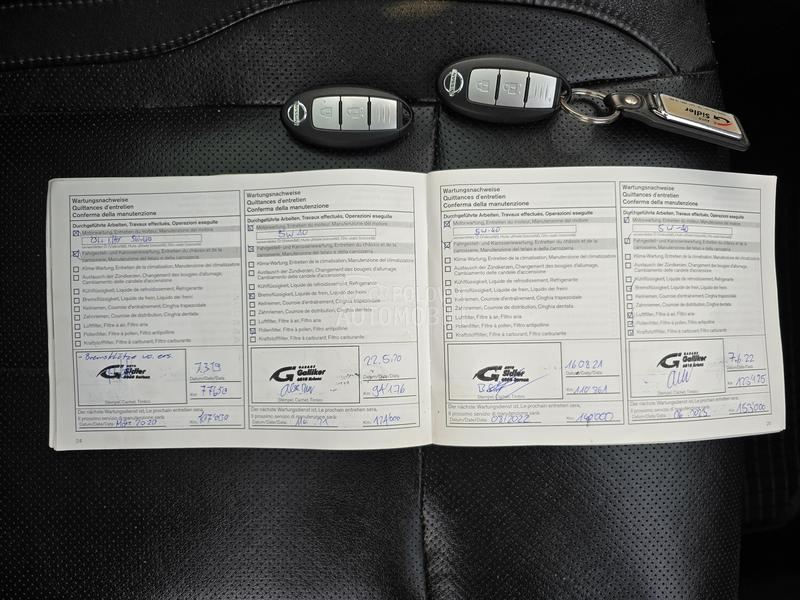 NISSAN
NISSAN
AUTO
Sidler
Wartungsnachweise
Quittances d'entretien
Conferma della manutenzione
Durchgeführte Arbeiten, Travaux effectués, Operazioni eseguite
Motorwartung, Entretien du moteur, Manutenzione del motore
5W40
Fahrgestell- und Karosseriewartung, Entretien du châssis et de la
carrosserie, Manutenzione del telaio e della carrozzeria
Klima-Wartung, Entretien de la climatisation, Manutenzione del climatizzatore
Austausch der Zündkerzen, Changement des bougies d'allumage,
Cambiamento delle candele d'accensione
Kühlflüssigkeit, Liquide de refroidissement, Refrigerante
Bremsflüssigkeit, Liquide de frein, Liquido dei freni
Keilriemen, Courroie d'entraînement, Cinghia trapezoidale
Zahnriemen, Courroie de distribution, Cinghia dentata
Luftfilter, Filtre à air, Filtro aria
Pollenfilter, Filtre à pollen, Filtro antipolline
Kraftstofffilter, Filtre à carburant, Filtro carburante
AUTO
Sidler
7.3.19
Datum/Date/Data
Km: 77'629
Stempel, Cachet, Timbro
Der nächste Wartungsdienst ist, Le prochain entretien sera,
Il prossimo servizio di manutenzione sarà:
Datum/Date/Data: März 2020 Km: 107'000
24
Wartungsnachweise
Quittances d'entretien
Conferma della manutenzione
Durchgeführte Arbeiten, Travaux effectués, Operazioni eseguite
Motorwartung, Entretien du moteur, Manutenzione del motore
5W40
Fahrgestell- und Karosseriewartung, Entretien du châssis et de la
carrosserie, Manutenzione del telaio e della carrozzeria
Klima-Wartung, Entretien de la climatisation, Manutenzione del climatizzatore
Austausch der Zündkerzen, Changement des bougies d'allumage,
Cambiamento delle candele d'accensione
Kühlflüssigkeit, Liquide de refroidissement, Refrigerante
Bremsflüssigkeit, Liquide de frein, Liquido dei freni
Keilriemen, Courroie d'entraînement, Cinghia trapezoidale
Zahnriemen, Courroie de distribution, Cinghia dentata
Luftfilter, Filtre à air, Filtro aria
Pollenfilter, Filtre à pollen, Filtro antipolline
Kraftstofffilter, Filtre à carburant, Filtro carburante
GARAGE
Galliker
22.5.20
Datum/Date/Data
Km: 94'176
Stempel, Cachet, Timbro
Der nächste Wartungsdienst ist, Le prochain entretien sera,
Il prossimo servizio di manutenzione sarà:
Datum/Date/Data: Km: 124'000
Wartungsnachweise
Quittances d'entretien
Conferma della manutenzione
Durchgeführte Arbeiten, Travaux effectués, Operazioni eseguite
Motorwartung, Entretien du moteur, Manutenzione del motore
5W-40
Fahrgestell- und Karosseriewartung, Entretien du châssis et de la
carrosserie, Manutenzione del telaio e della carrozzeria
Klima-Wartung, Entretien de la climatisation, Manutenzione del climatizzatore
Austausch der Zündkerzen, Changement des bougies d'allumage,
Cambiamento delle candele d'accensione
Kühlflüssigkeit, Liquide de refroidissement, Refrigerante
Bremsflüssigkeit, Liquide de frein, Liquido dei freni
Keilriemen, Courroie d'entraînement, Cinghia trapezoidale
Zahnriemen, Courroie de distribution, Cinghia dentata
Luftfilter, Filtre à air, Filtro aria
Pollenfilter, Filtre à pollen, Filtro antipolline
Kraftstofffilter, Filtre à carburant, Filtro carburante
AUTO
Sidler
16.08.21
Datum/Date/Data
Km: 110'961
Stempel, Cachet, Timbro
Der nächste Wartungsdienst ist, Le prochain entretien sera,
Il prossimo servizio di manutenzione sarà:
Datum/Date/Data: 08/2022 Km: 140'000
Wartungsnachweise
Quittances d'entretien
Conferma della manutenzione
Durchgeführte Arbeiten, Travaux effectués, Operazioni eseguite
Motorwartung, Entretien du moteur, Manutenzione del motore
5W-40
Fahrgestell- und Karosseriewartung, Entretien du châssis et de la
carrosserie, Manutenzione del telaio e della carrozzeria
Klima-Wartung, Entretien de la climatisation, Manutenzione del climatizzatore
Austausch der Zündkerzen, Changement des bougies d'allumage,
Cambiamento delle candele d'accensione
Kühlflüssigkeit, Liquide de refroidissement, Refrigerante
Bremsflüssigkeit, Liquide de frein, Liquido dei freni
Keilriemen, Courroie d'entraînement, Cinghia trapezoidale
Zahnriemen, Courroie de distribution, Cinghia dentata
Luftfilter, Filtre à air, Filtro aria
Pollenfilter, Filtre à pollen, Filtro antipolline
Kraftstofffilter, Filtre à carburant, Filtro carburante
GARAGE
Galliker
7.6.22
Datum/Date/Data
Km: 123'425
Stempel, Cachet, Timbro
Der nächste Wartungsdienst ist, Le prochain entretien sera,
Il prossimo servizio di manutenzione sarà:
Datum/Date/Data: Km: 153'000
25